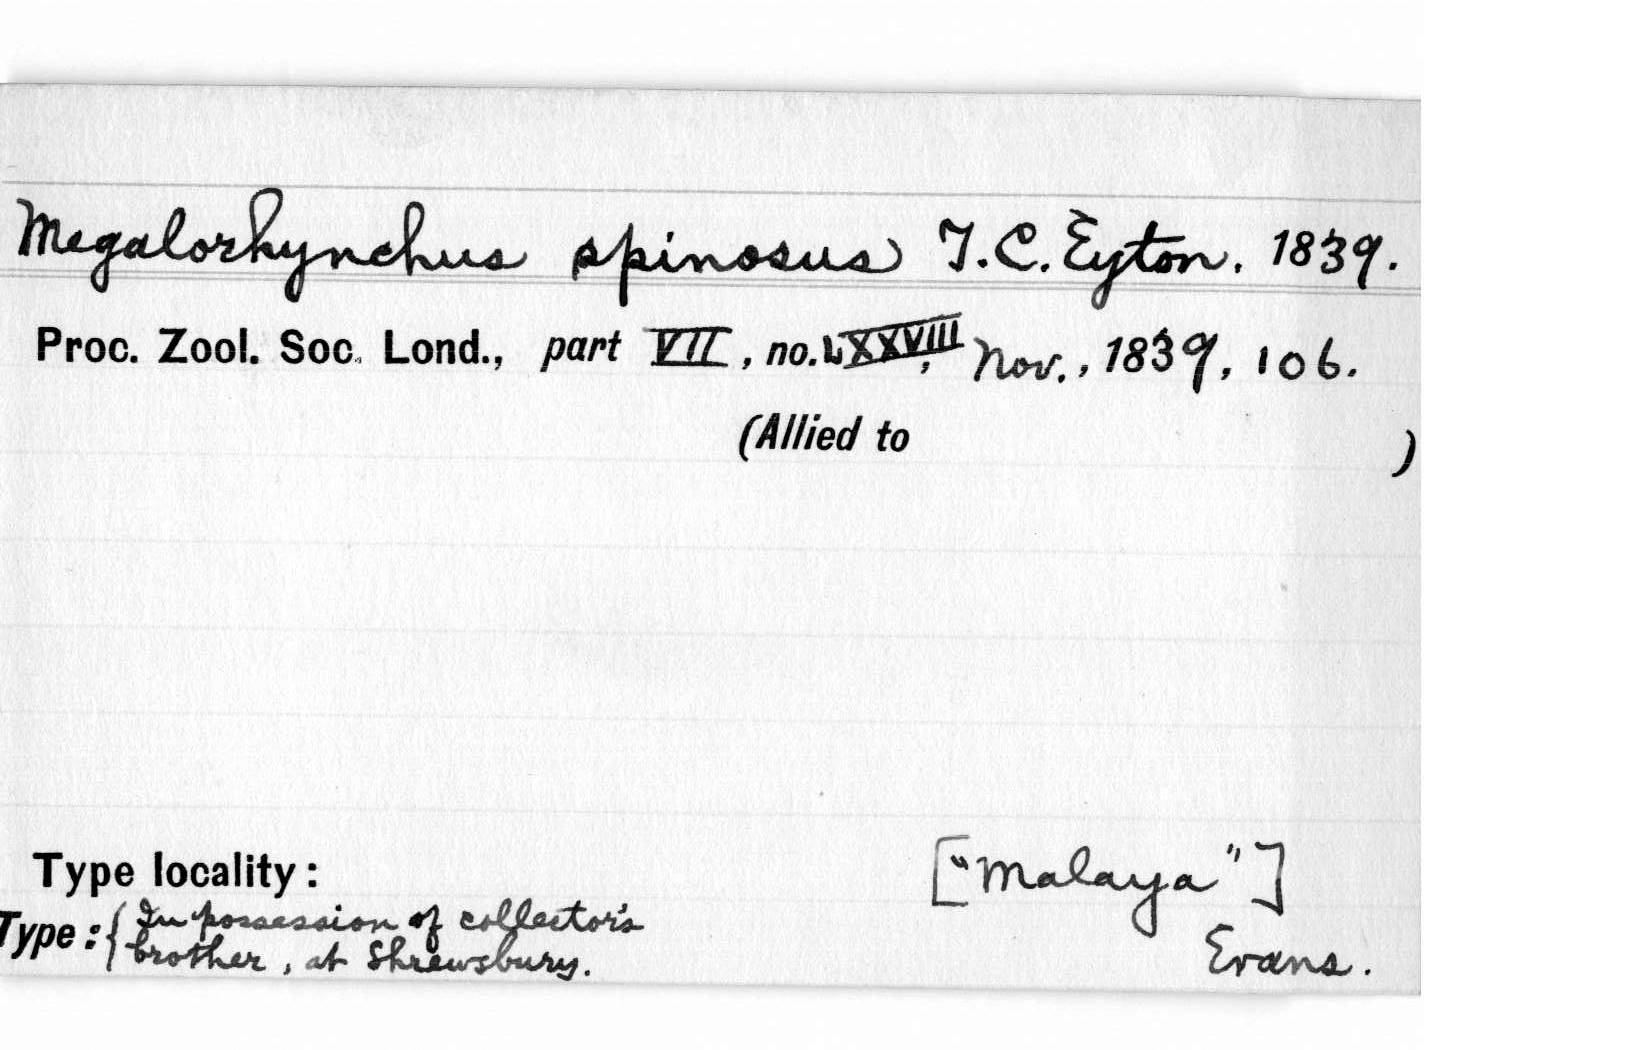 Megalorhynchus spinosus T.C. Eyton. 1839.
Proc. Zool. Soc. Lond., part VII, no. LXXXVIII, Nov., 1839, 106.
(Allied to )
Type locality: ["Malaya"]
Type: { In possession of collector's
brother, at Shrewsbury.
Evans.